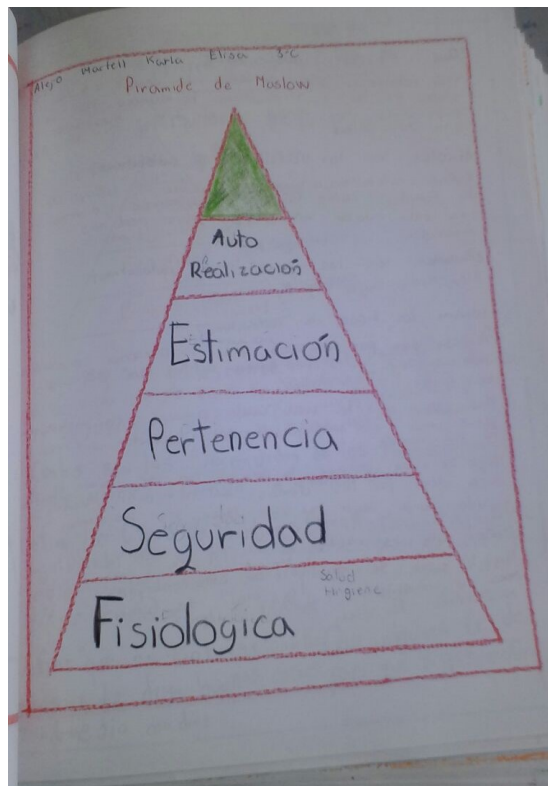 Alejo Martell Karla Elisa 3°C
Piramide de Maslow
Auto
Realización
Estimación
Pertenencia
Seguridad
Salud
Higiene
Fisiologica